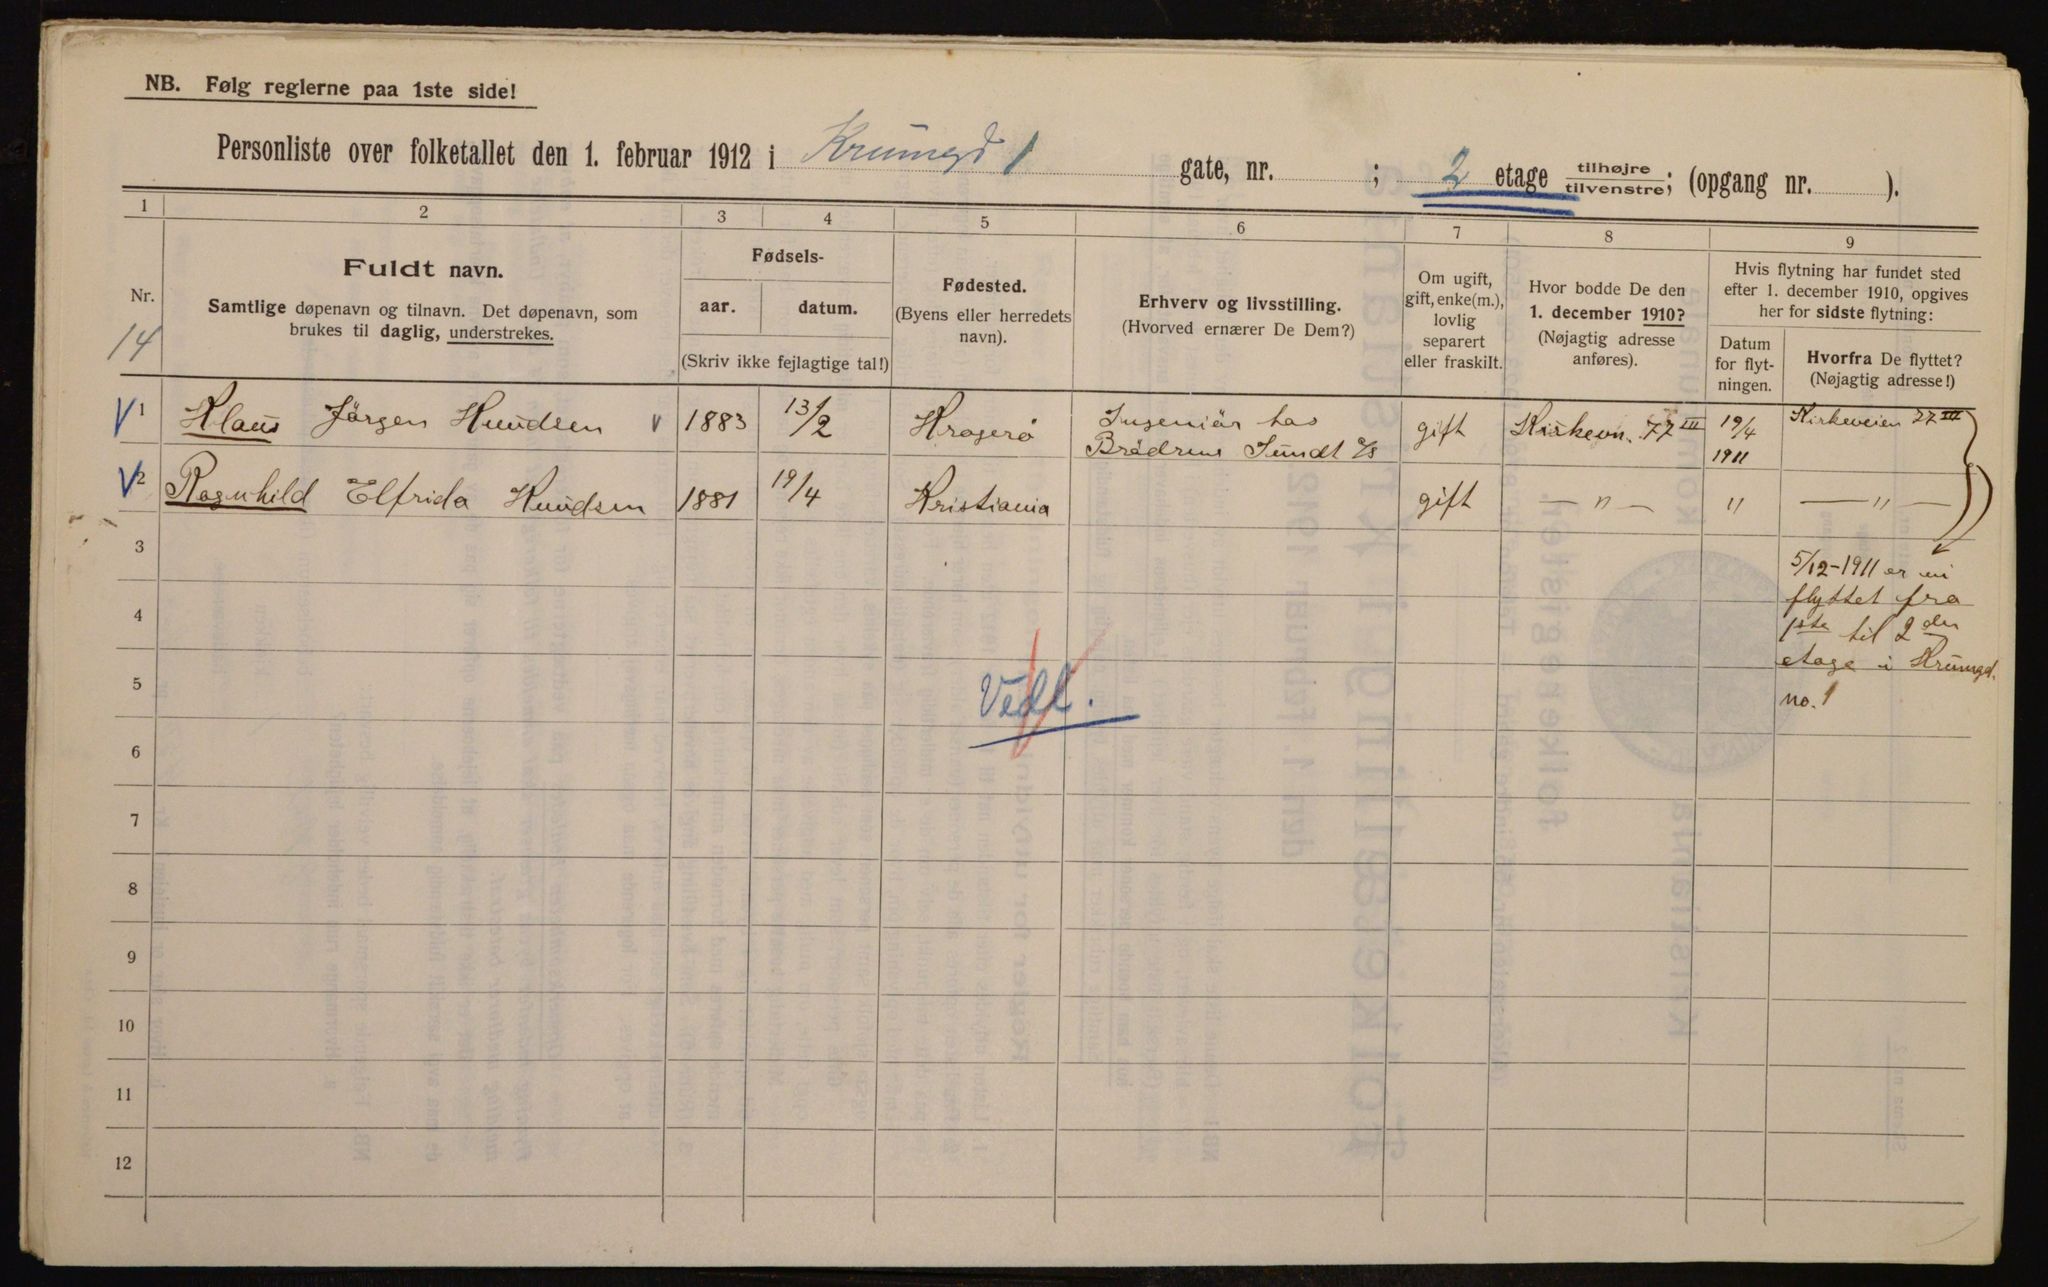 NB. Følg reglerne paa 1ste side!
Personliste over folketallet den 1. februar 1912 i Krumgd 1 gate, nr. ; 2 etage tilhøjre tilvenstre; (opgang nr. ).
1 2 3 4 5 6 7 8 9
Nr.
14
Fuldt navn.
Samtlige døpenavn og tilnavn. Det døpenavn, som
brukes til daglig, understrekes.
Fødsels-
aar. datum.
(Skriv ikke fejlagtige tal!)
Fødested.
(Byens eller herredets
navn).
Erhverv og livsstilling.
(Hvorved ernærer De Dem?)
Om ugift,
gift, enke(m.),
lovlig
separert
eller fraskilt.
Hvor bodde De den
1. december 1910?
(Nøjagtig adresse
anføres).
Hvis flytning har fundet sted
efter 1. december 1910, opgives
her for sidste flytning:
Datum
for flyt-
ningen.
Hvorfra De flyttet?
(Nøjagtig adresse!)
V 1 Klaus Jörgen Knudsen v 1883 13/2 Kragerø Ingeniör hos gift Kirkevn. 77 III 19/4 Kirkeveien 77 III
Brödrene Sundt 1911
V 2 Ragnhild Elfrida Knudsen 1881 19/4 Kristiania gift — " — " — " —
3
5/12-1911 er vi
4 flyttet fra
1ste til 2den
5 etage i Krumgd.
no. 1
Vedl.
6
7
8
9
10
11
12